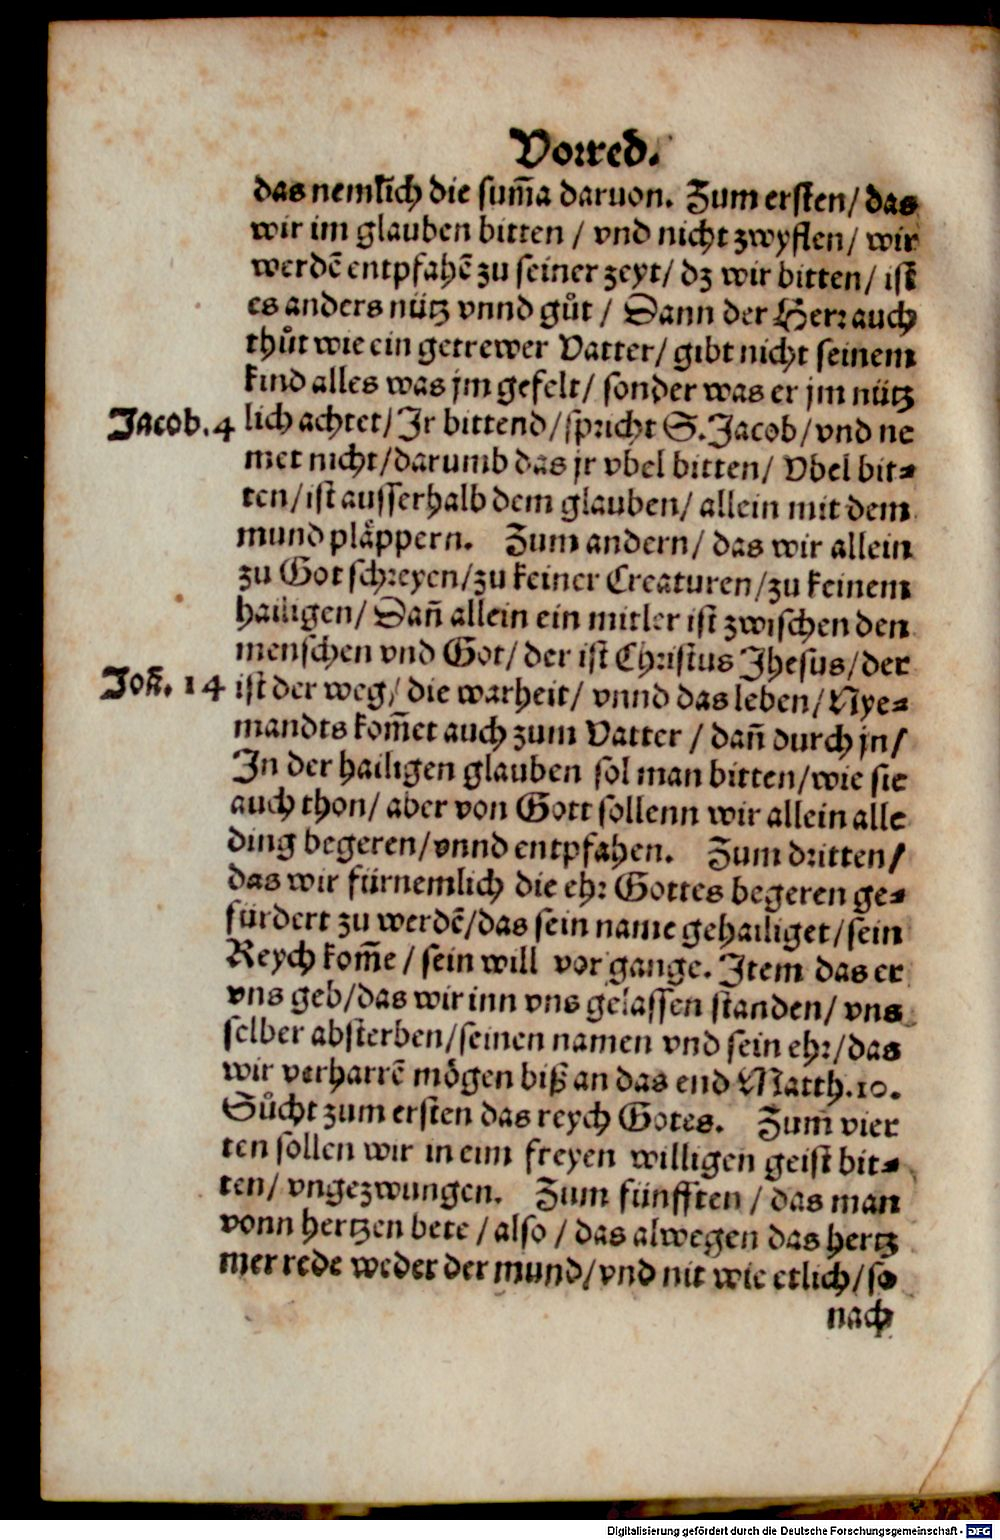 Vorred.
das nemlich die sum̃a daruon. Zum ersten/ das
wir im glauben bitten / vnd nicht zwyflen/ wir
werdẽ entpfahẽ zu seiner zeyt/ dz wir bitten/ ist
es anders nütz vnnd gůt / Dann der Herr auch
thůt wie ein getrewer Vatter/ gibt nicht seinem
kind alles was jm gefelt/ sonder was er jm nütz
Jacob. 4
lich achtet/ Jr bittend/ spricht S. Jacob/ vnd ne
met nicht/ darumb das jr vbel bitten/ Vbel bit⸗
ten/ ist ausserhalb dem glauben/ allein mit dem
mund plåppern. Zum andern/ das wir allein
zu Got schreyen/ zu keiner Creaturen/ zu keinem
hailigen/ Dañ allein ein mitler ist zwischen den
menschen vnd Got/ der ist Christus Jhesus/ der
Joh̃. 14
ist der weg/ die warheit/ vnnd das leben/ Nye⸗
mandts kom̃et auch zum Vatter / dañ durch jn/
In der hailigen glauben sol man bitten/ wie sie
auch thon/ aber von Gott sollenn wir allein alle
ding begeren/ vnnd entpfahen. Zum dritten/
das wir fürnemlich die ehr Gottes begeren ge⸗
fürdert zu werdẽ/ das sein name gehailiget/ sein
Reych kom̃e / sein will vor gange. Item das er
vns geb/ das wir inn vns gelassen standen/ vns
selber absterben/ seinen namen vnd sein ehr/ das
wir verharrẽ mögen biß an das end Matth. 10.
Sůcht zum ersten das reych Gotes. Zum vier
ten sollen wir in eim freyen willigen geist bit⸗
ten/ vngezwungen. Zum fünfften / das man
vonn hertzen bete / also / das alwegen das hertz
mer rede weder der mund/ vnd nit wie etlich/ so
nach
Digitalisierung gefördert durch die Deutsche Forschungsgemeinschaft - DFG